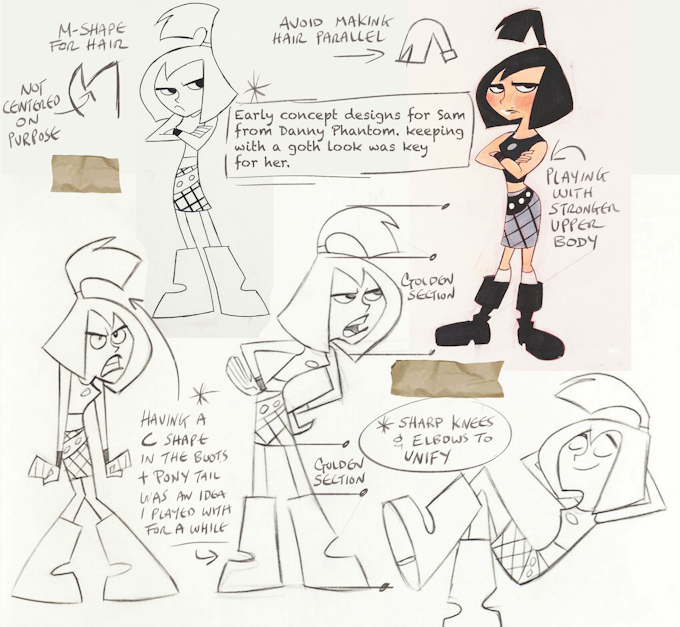 M-SHAPE
FOR HAIR
NOT
CENTERED
ON
PURPOSE
AVOID MAKING
HAIR PARALLEL
Early concept designs for Sam
from Danny Phantom. keeping
with a goth look was key
for her.
PLAYING
WITH
STRONGER
UPPER
BODY
GOLDEN
SECTION
HAVING A
C SHAPE
IN THE BOOTS
+ PONY TAIL
WAS AN IDEA
I PLAYED WITH
FOR A WHILE
GOLDEN
SECTION
* SHARP KNEES
& ELBOWS TO
UNIFY